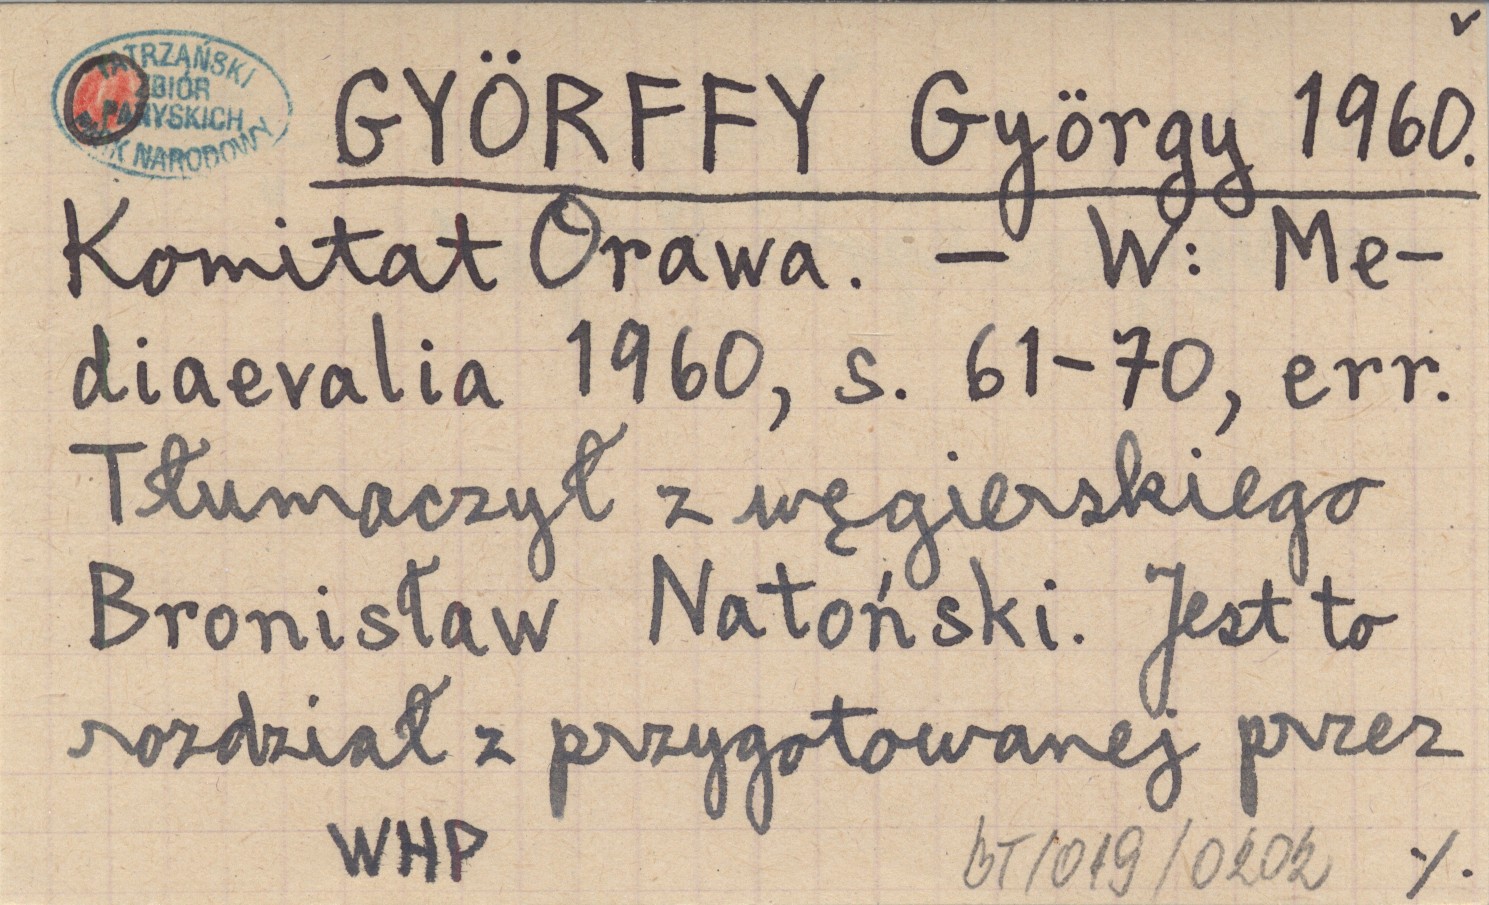 TATRZAŃSKI
ZBIÓR
PARYSKICH
PARK NARODOWY
v
GYÖRFFY György 1960.
Komitat Orawa. – W: Me-
diaevalia 1960, s. 61-70, err.
Tłumaczył z węgierskiego
Bronisław Natoński. Jest to
rozdział z przygotowanej przez
WHP
BT/019/0202
·/.